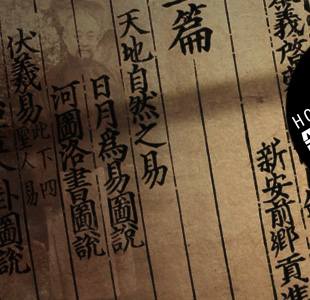 義啓
新安前鄉貢進
篇
天地自然之易
日月爲易圖說
河圖洛書圖說
伏羲易
此下四
聖人易
八卦圖說
HO